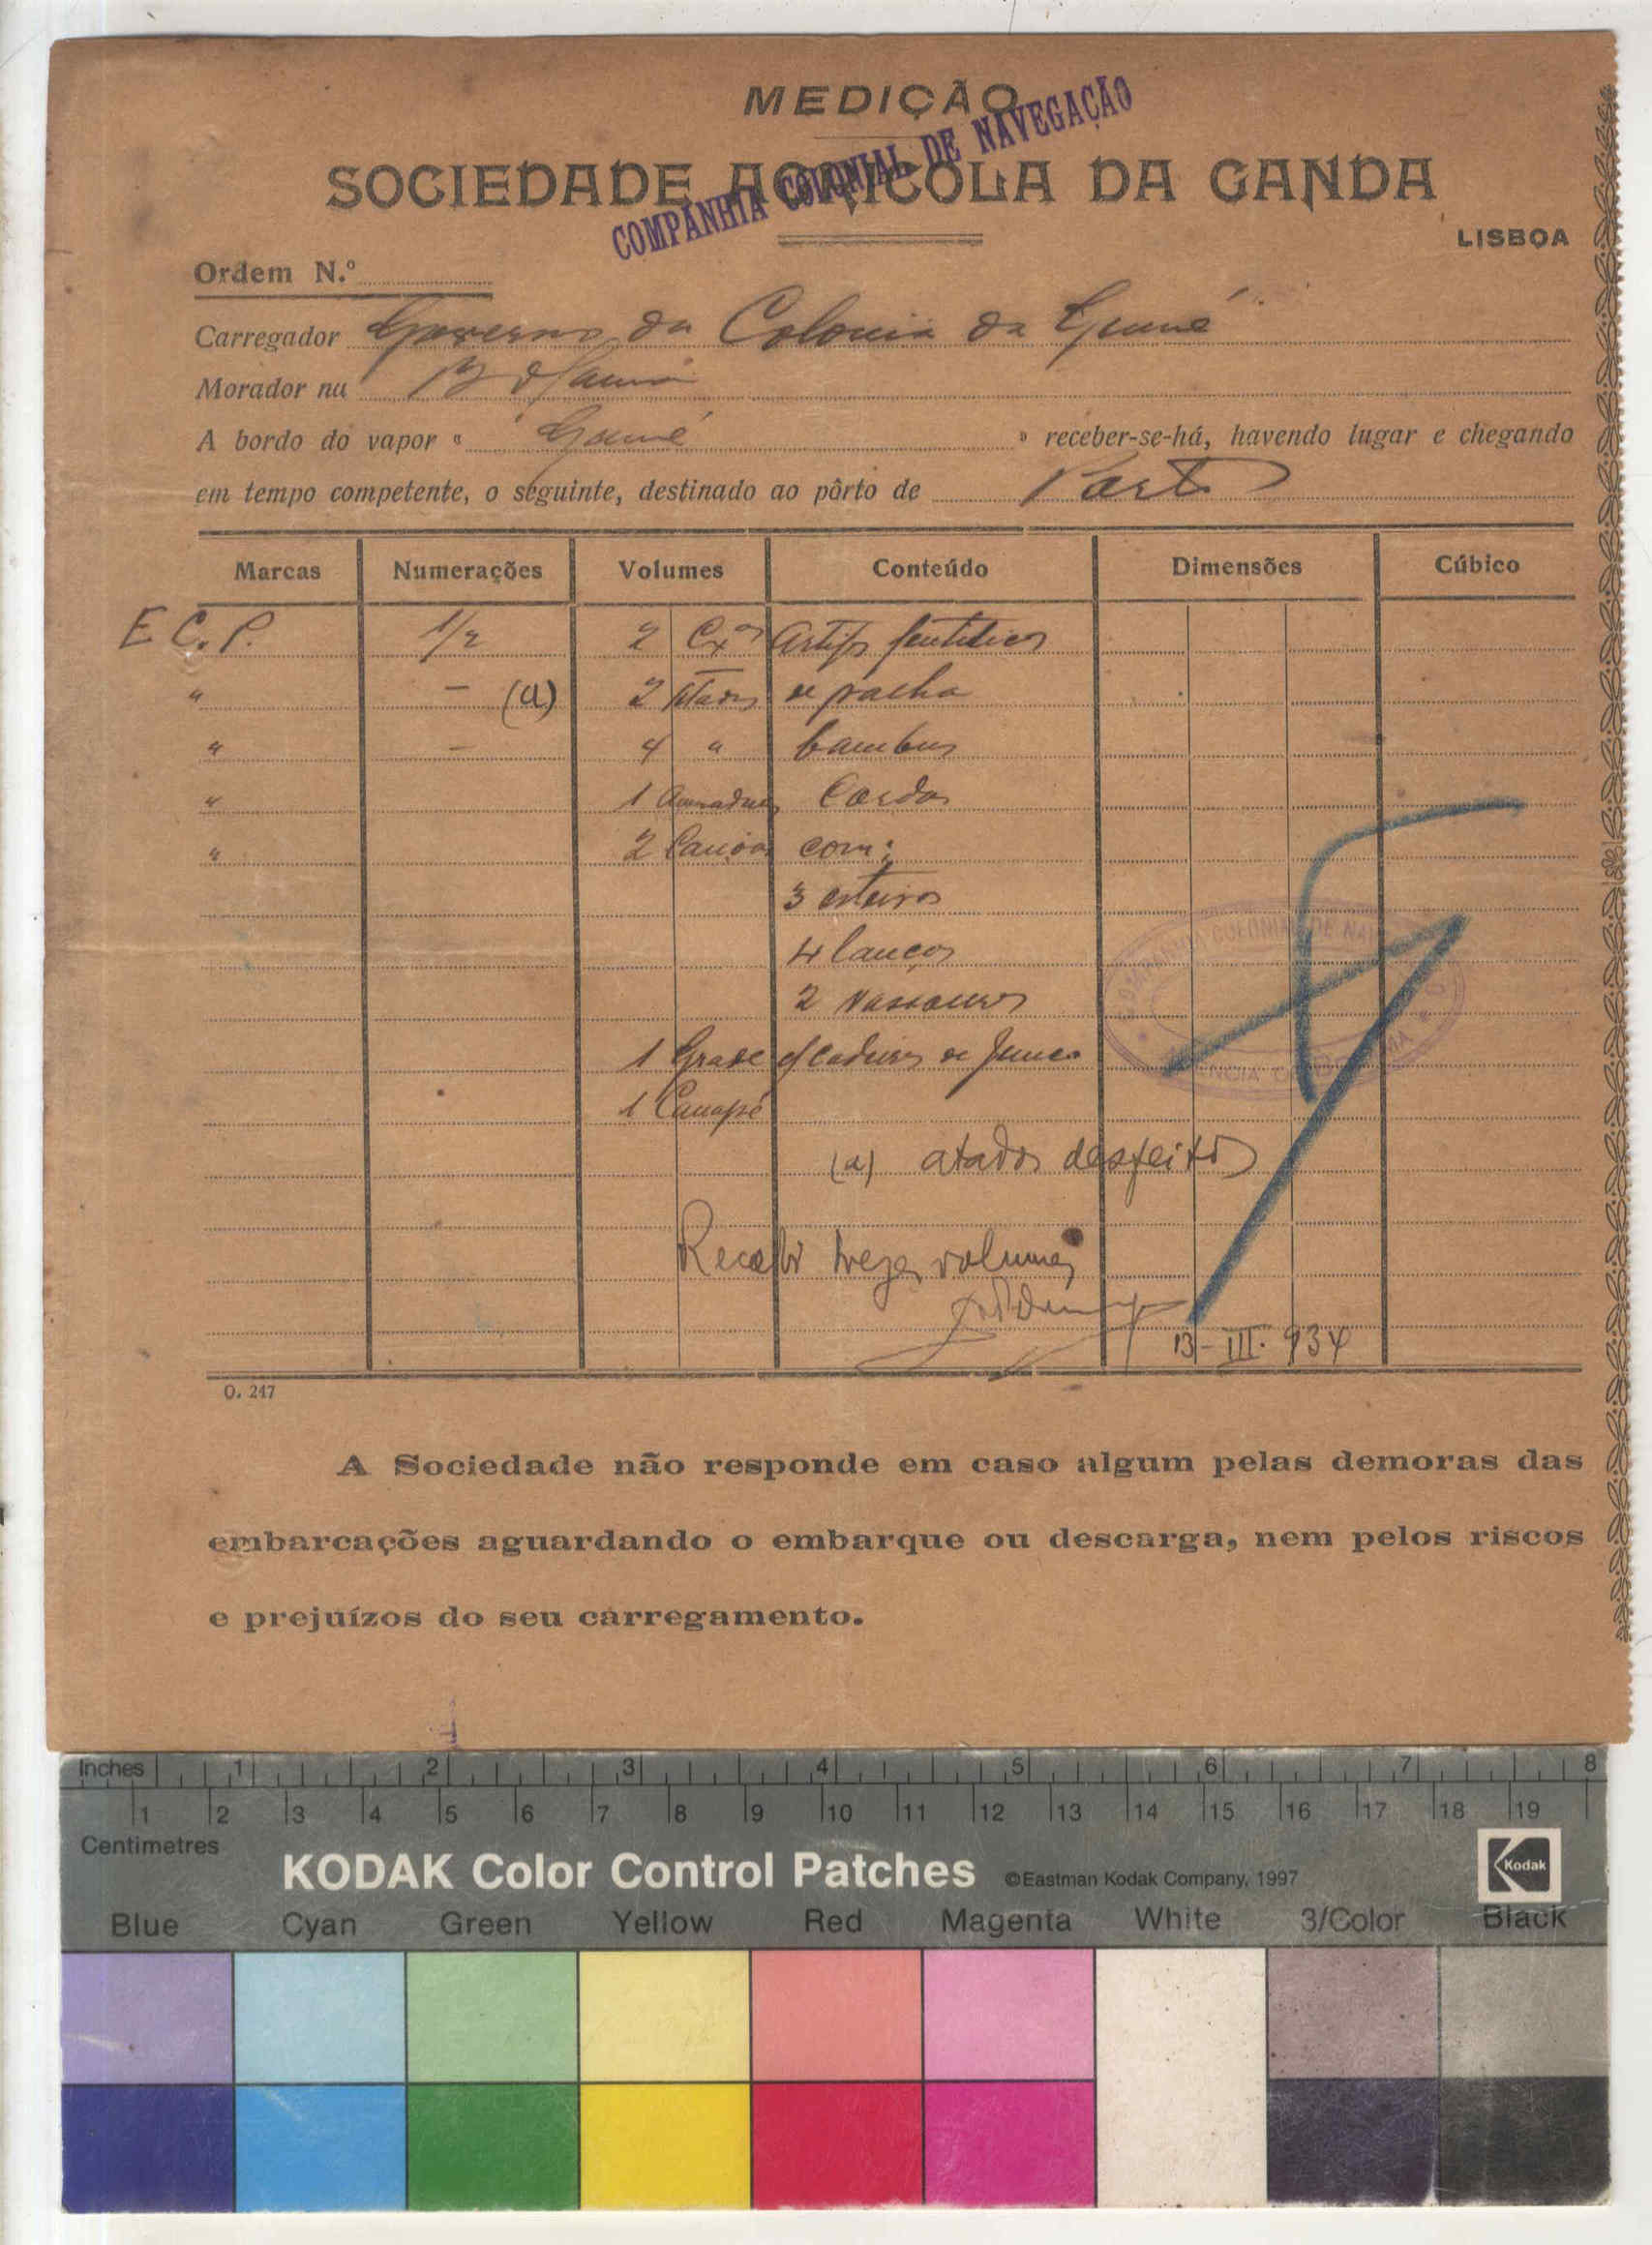 MEDIÇÃO
COMPANHIA COLONIAL DE NAVEGAÇÃO
SOCIEDADE AGRICOLA DA GANDA
LISBOA
Ordem N.º
Carregador Governo da Colonia da Guiné
Morador na
A bordo do vapor « Guiné » receber-se-há, havendo lugar e chegando
em tempo competente, o seguinte, destinado ao pôrto de
Marcas Numerações Volumes Conteúdo Dimensões Cúbico
E C. P. 1/2 2 Cxas Artifos
" - (a) 2 Atados de palha
" - 4 " bambus
" 1 Cordas
" 2 Canôas com:
3 esteiras
4 lanças
2 Vassouras
1 Grade c/ cadeiras de Junco
1 Canapé
(a) atados desfeitos
Recebi treze volumes
13-III-934
O. 247
A Sociedade não responde em caso algum pelas demoras das
embarcações aguardando o embarque ou descarga, nem pelos riscos
e prejuízos do seu carregamento.
Inches 1 2 3 4 5 6 7 8
1 2 3 4 5 6 7 8 9 10 11 12 13 14 15 16 17 18 19
Centimetres
KODAK Color Control Patches ©Eastman Kodak Company, 1997 Kodak
Blue Cyan Green Yellow Red Magenta White 3/Color Black